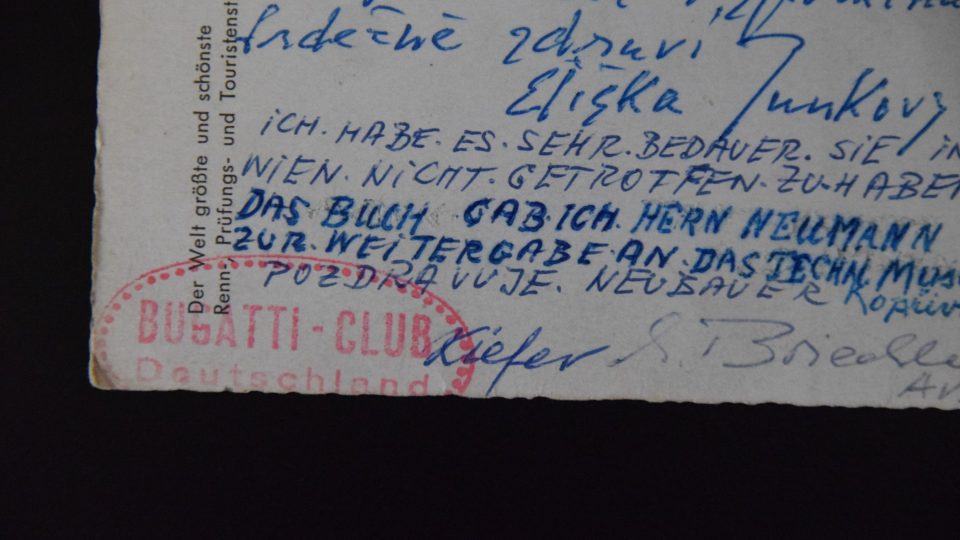 Srdečně zdraví
Eliška Junková
iCH. HABE. ES. SEHR. BEDAUER. SiE iN
WiEN. NiCHT. GETROFFEN. ZU. HABEN
DAS BUCH GAB. ICH. HERN NEUMANN
ZUR. WEiTERGABE AN. DAS TECHN. MUS
POZDRAVUJE. NEUBAUER
Kiefer
Der Welt größte und schönste
Renn-, Prüfungs- und Touristenst
BUGATTI-CLUB
Deutschland